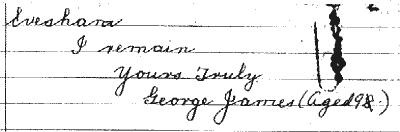 Evesham
I remain
Yours Truly
George James (Aged 98.)